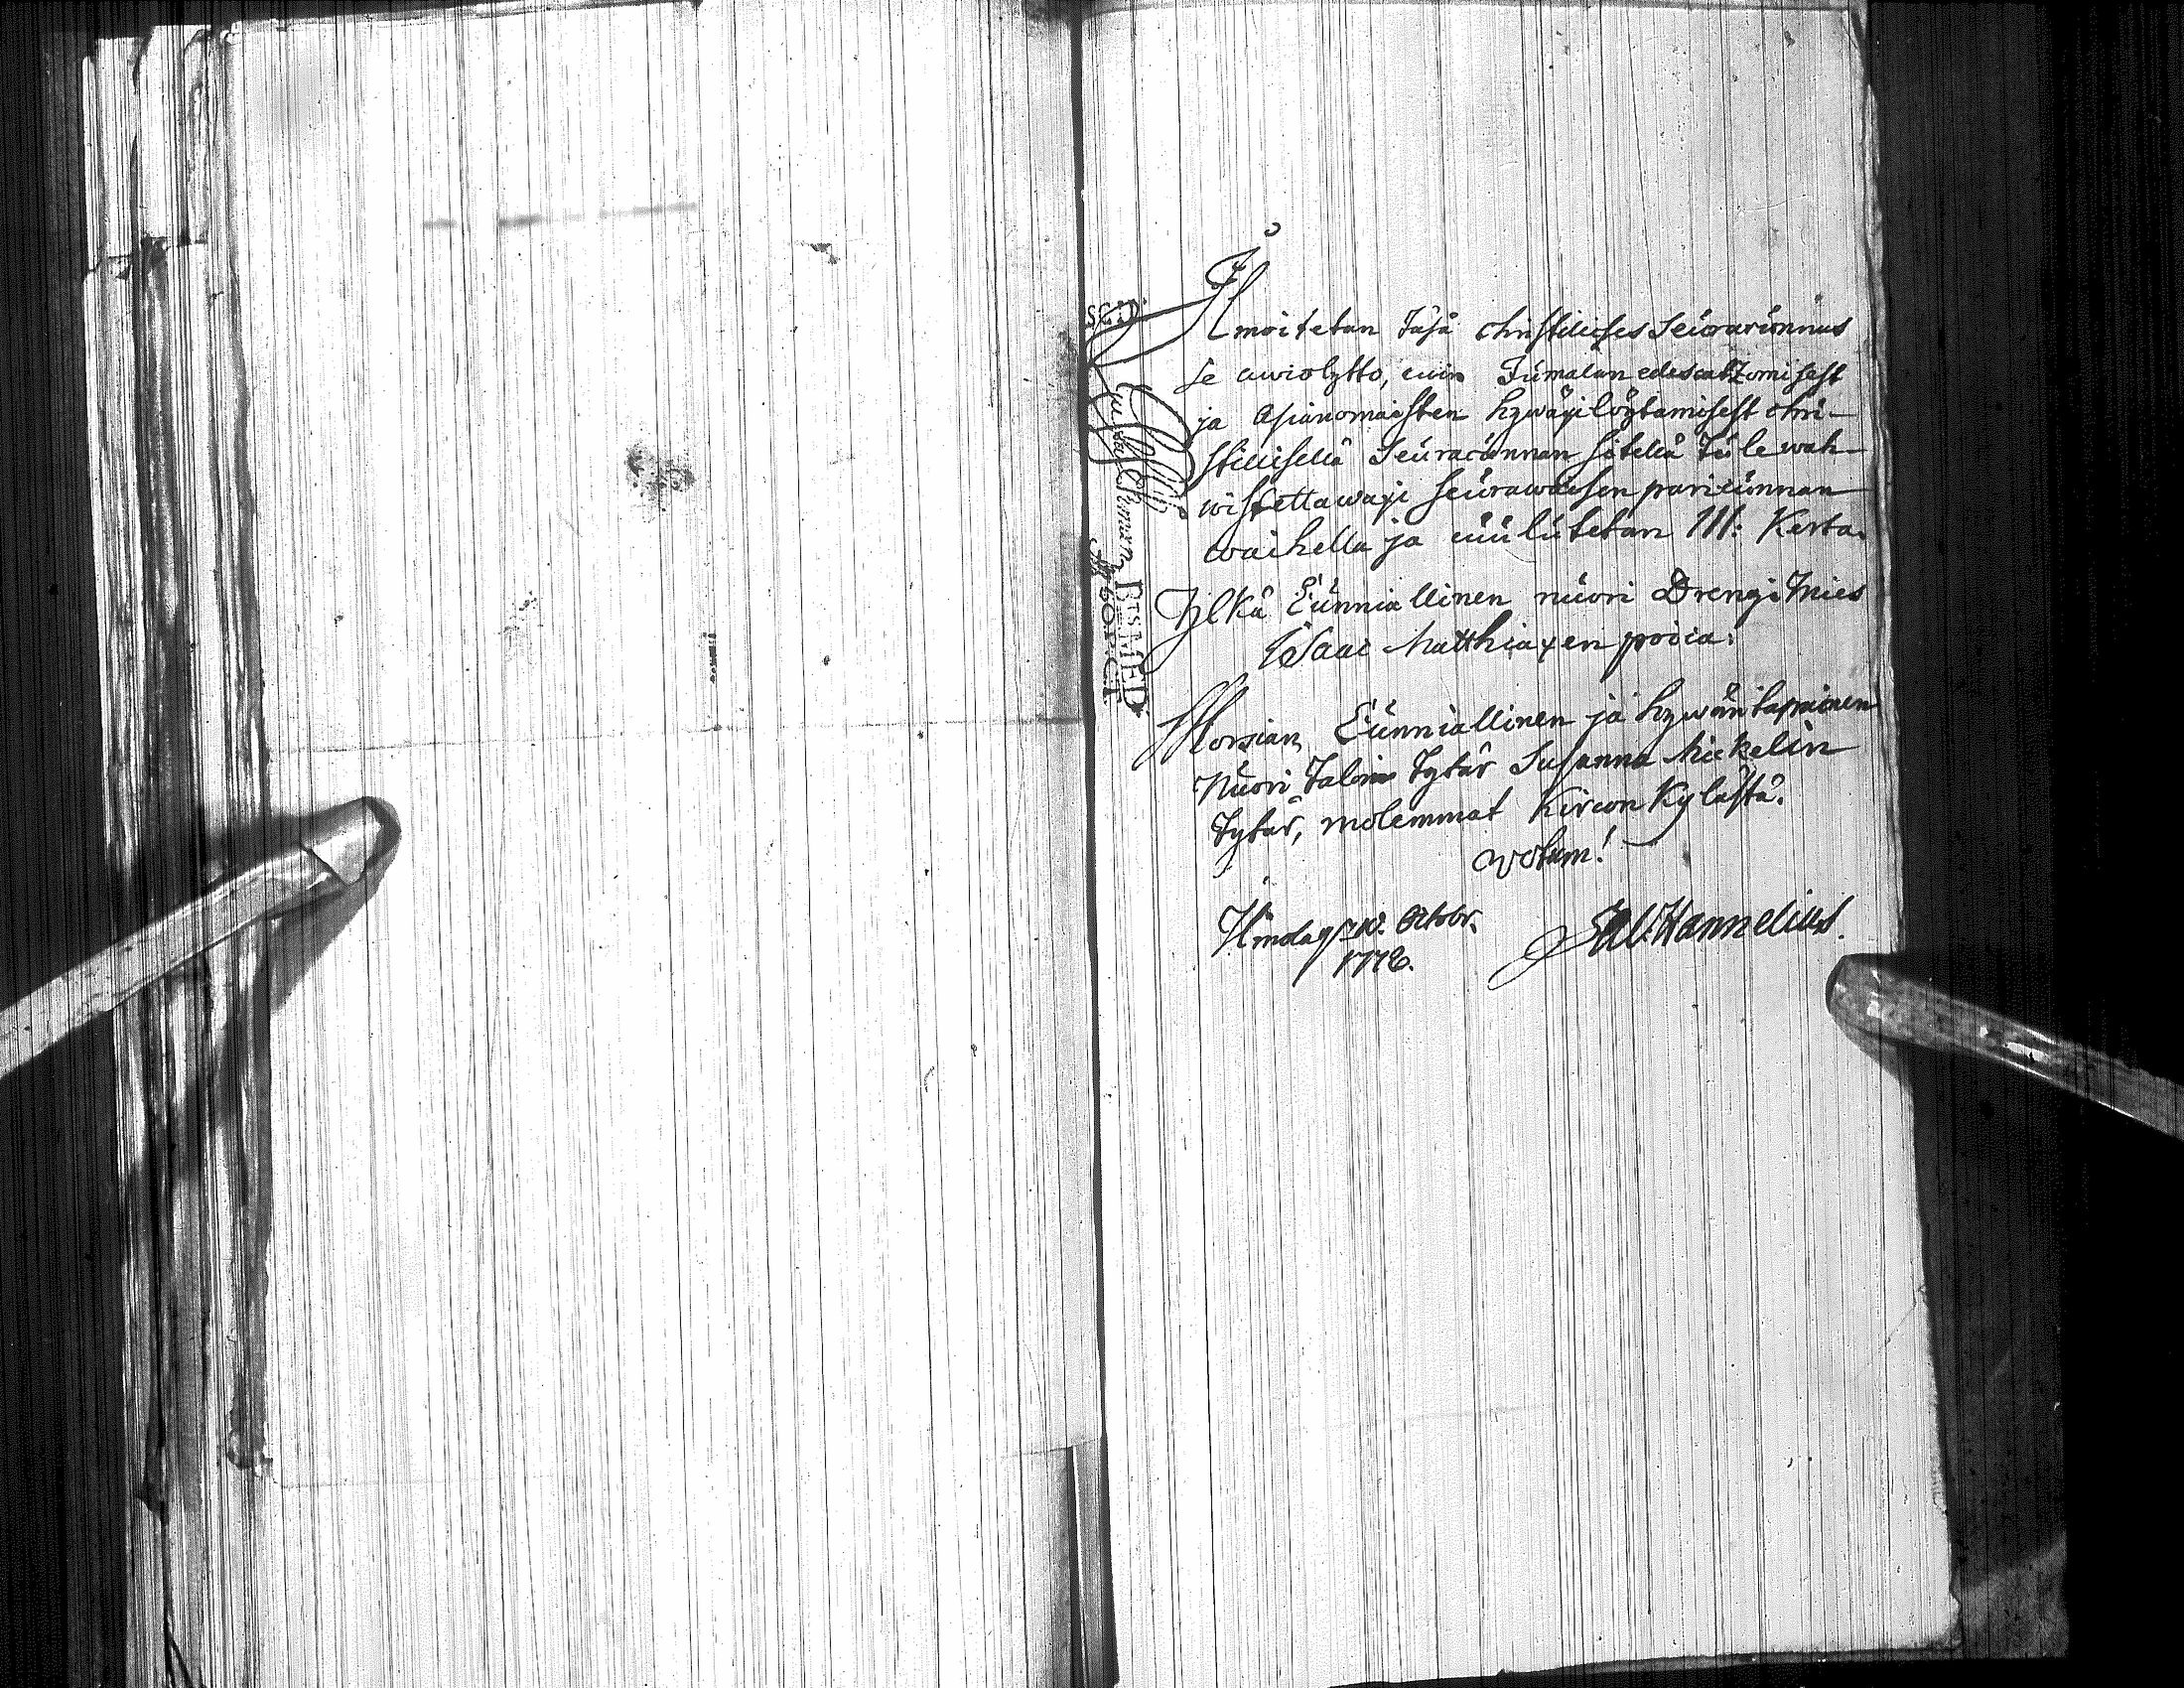 Ilmoitetan täsä christillises Seuracunnas
se awiolijtto, cuin Jumalan edescatzomisest
ja asianomaisten hywäxi löytämisest chri-
stillisellä Seuracunnan siteellä tule wah-
wistettawaxi seurawaisen paricunnan
waihella ja cuulutetan III: Kerta.
Yljkä Cunniallinen nuori Drengi Mies
Isaac Matthiaxen poica:
Morsian Cunniallinen ja hywäntapainen
Nuori Talon Tytär Susanna Mickelin
tytär, molemmat Kircon Kylästä.
Votum!
10. Octobr.
1772.
Hannelius.